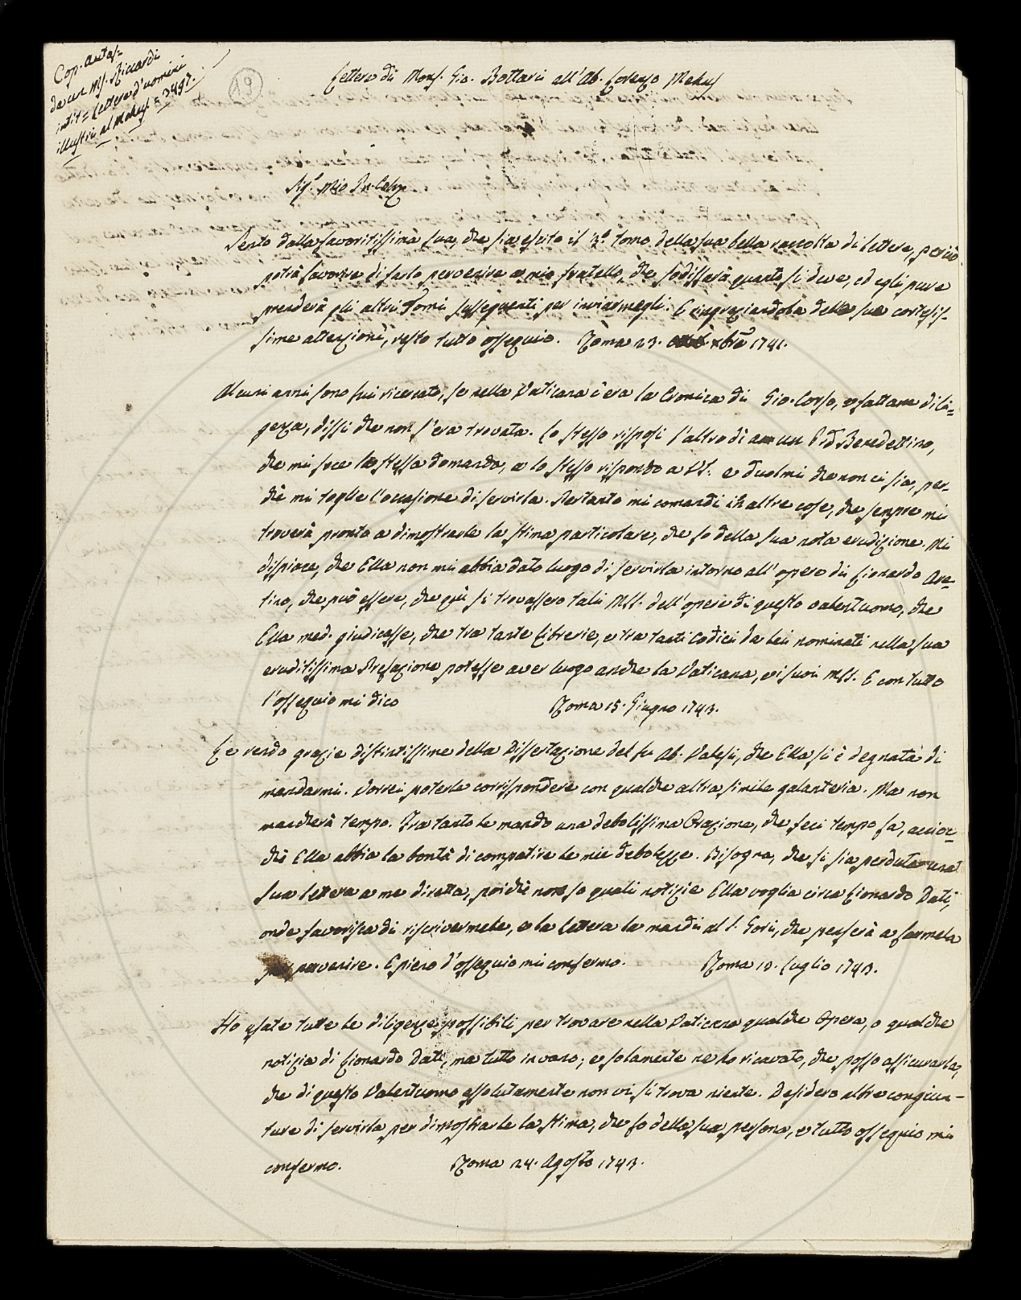 Cop. autog.
da un ms. Riccardi
intit = Lettere d'uomini
illustri al Mehus = 3497.
19
Lettere di Mons. Gio. Bottari all'Ab. Lorenzo Mehus
Sig.r Mio
Sento dalla favoritissima sua, che sia escito il 3.o tomo della sua bella raccolta di lettere, perciò
potrà favorire di farlo pervenire a mio fratello, che sodisferà quanto si deve, ed egli pure
prenderà gli altri Tomi susseguenti per inviarmegli. E ringraziandola della sua cortesis-
sima attenzione, resto tutto ossequio. Roma 23. xbre 1741.
Alcuni anni sono fui ricercato, se nella Vaticana v'era la Cronica di Gio. Corso, e fattane dili-
genza, dissi che non s'era trovata. Lo stesso risposi l'altro dì a un P. Benedettino,
che mi fece la stessa domanda, e lo stesso rispondo a VS. e duolmi che non ci sia, per-
chè mi toglie l'occasione di servirla. Pertanto mi comandi in altre cose, che sempre mi
troverà pronto a dimostrarle la stima particolare, che fo della sua nota erudizione. Mi
dispiace, che Ella non mi abbia dato luogo di servirla intorno all'opere di Lionardo Are-
tino, che può essere, che quì si trovassero tali MSS. dell'opere di questo valentuomo, che
Ella med. giudicasse, che tra tante Librerie, e tra tanti Codici da lei nominati nella sua
eruditissima Prefazione potesse aver luogo anche la Vaticana, e i suoi MSS. E con tutto
l'ossequio mi dico Roma 15. Giugno 1743.
Le rendo grazie distintissime della Dissertazione del Sr. Ab. Valesi, che Ella si è degnata di
mandarmi. Vorrei poterle corrispondere con qualche altra simile galanteria. Ma non
mancherà tempo. Fra tanto le mando una debolissima Orazione, che feci tempo fa, accioc-
chè Ella abbia la bontà di compatire le mie debolezze. Bisogna, che si sia perduta una
sua lettera a me diretta, poichè non so quali notizie Ella voglia circa Lionardo Dati,
onde favorisca di riscrivermele, e la lettera la mandi al S. Gori, che penserà a farmela
pervenire. E pieno d'ossequio mi confermo. Roma 10. Luglio 1743.
Ho usate tutte le diligenze possibili per trovare nella Vaticana qualche Opera, o qualche
notizia di Lionardo Dati, ma tutto invano; e solamente ne ho ricavato, che posso assicurarla,
che di questo Valentuomo assolutamente non vi si trova niente. Desidero altre congiun-
ture di servirla per dimostrarle la stima, che fo della sua persona, e tutto ossequio mi
confermo. Roma 24. Agosto 1743.